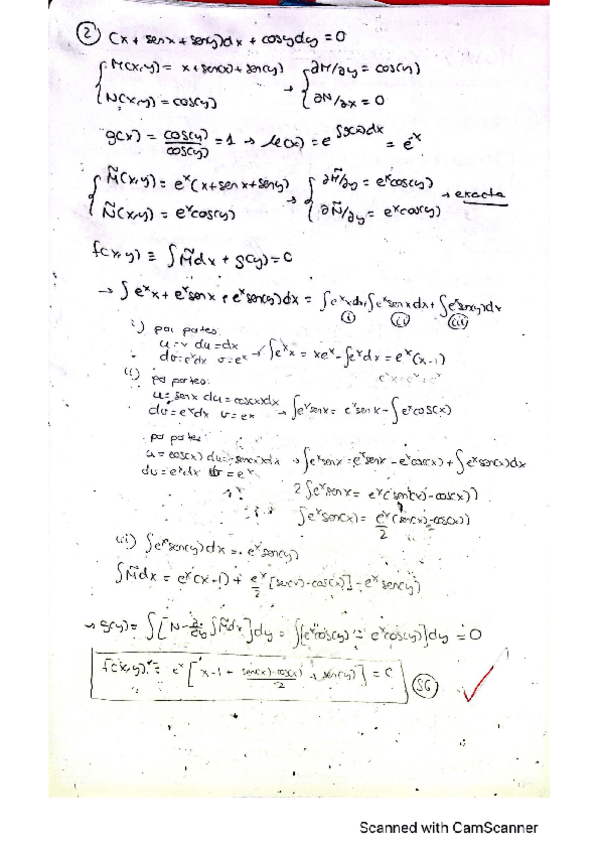 ② (x + senx + seny)dx + cosydy = 0
{ M(x,y) = x + sen(x) + sen(y) → { ∂M/∂y = cos(y)
{ N(x,y) = cos(y) { ∂N/∂x = 0
g(x) = cos(y)/cos(y) = 1 → μ(x) = e^∫g(x)dx = e^x
{ M̃(x,y) = e^x(x + senx + seny) → { ∂M̃/∂y = e^x cos(y) → exacta
{ Ñ(x,y) = e^x cos(y) { ∂Ñ/∂y = e^x cos(y)
f(x,y) ≡ ∫M̃dx + g(y) = C
→ ∫e^x x + e^x senx + e^x sen(y)dx = ∫e^x x dx + ∫e^x senx dx + ∫e^x sen(y)dx
(i) (ii) (iii)
i) por partes:
u = x du = dx
dv = e^x dx v = e^x → ∫e^x x = xe^x - ∫e^x dx = e^x(x-1)
ii) por partes:
u = senx du = cos(x)dx
dv = e^x dx v = e^x → ∫e^x senx = e^x senx - ∫e^x cos(x)
por partes:
u = cos(x) du = -sen(x)dx → ∫e^x senx = e^x senx - e^x cos(x) + ∫e^x sen(x)dx
dv = e^x dx v = e^x
2∫e^x senx = e^x(sen(x) - cos(x))
∫e^x sen(x) = e^x/2 (sen(x) - cos(x))
iii) ∫e^x sen(y)dx = e^x sen(y)
∫M̃dx = e^x(x-1) + e^x/2 [sen(x) - cos(x)] - e^x sen(y)
→ g(y) = ∫[N - ∂/∂y ∫M̃dx]dy = ∫[e^x cos(y) - e^x cos(y)]dy = 0
f(x,y) = e^x [x - 1 + sen(x)-cos(x)/2 + sen(y)] = C SG
Scanned with CamScanner